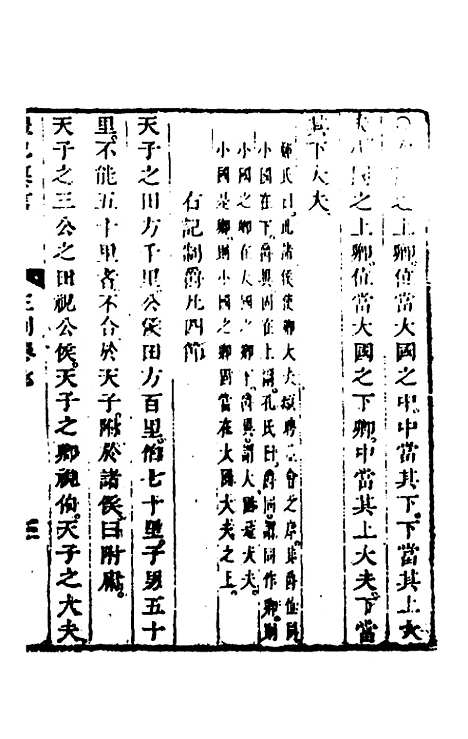 之上卿位當大國之中中當其下下當其上大
夫小國之上卿位當大國之下卿中當其上大夫下當
其下大夫
鄭氏曰此諸侯使卿大夫頫聘並會之序其爵位同
小國在下爵異固在上謂孔氏曰爵同謂同作卿則
小國之卿在大國卿下爵異謂大夫
小國是卿則小國之卿固當在大國大夫之上
右記制爵凡四節
天子之田方千里公侯田方百里伯七十里子男五十
里不能五十里者不合於天子附於諸侯曰附庸
天子之三公之田視公侯天子之卿視伯天子之大夫
三